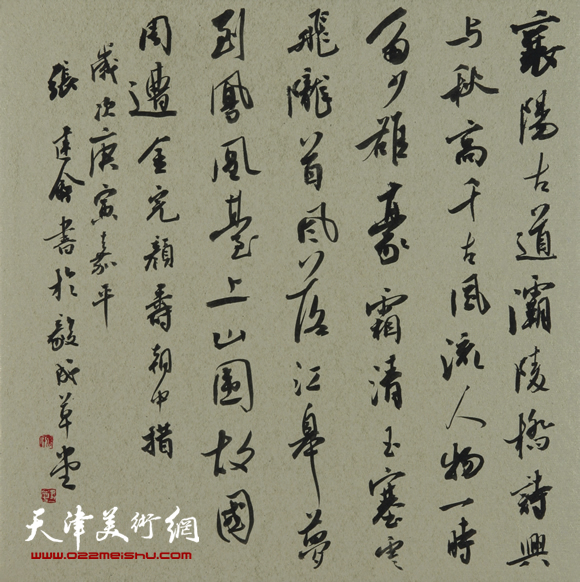 襄陽古道灞陵橋詩興
与秋高千古風流人物一時
多少雄豪霜清玉塞雲
飛隴首風落江皋夢
到鳳凰臺上山圍故國
周遭金完顏壽朝中措
歲次庚寅嘉平
張建會書於毅成草堂
天津美術網
www.022meishu.com